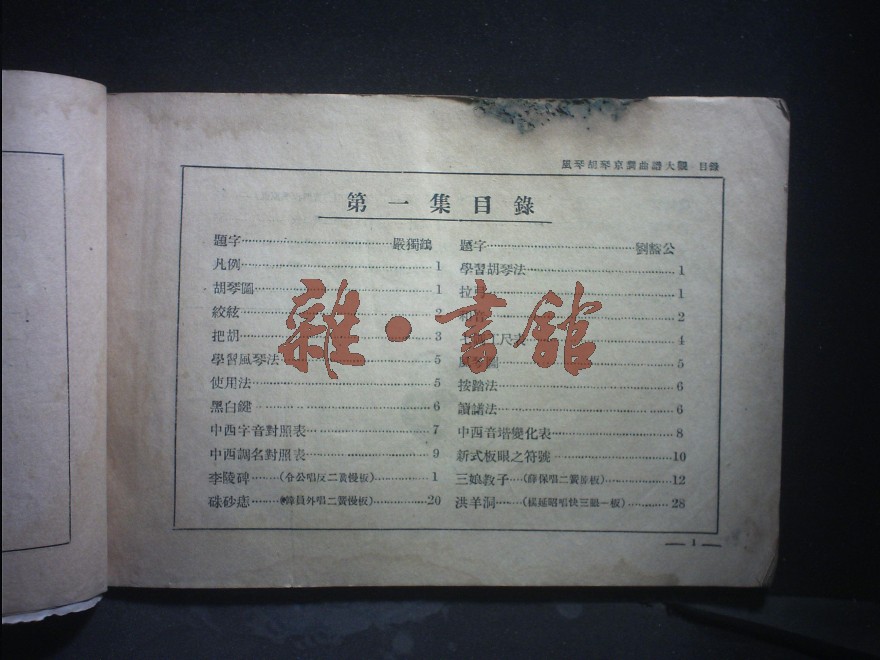 風琴胡琴京戲曲譜大觀 目錄
第一集目錄
題字 嚴獨鶴
凡例 1
胡琴圖 1
絞絃 2
把胡 3
學習風琴法 5
使用法 5
黑白鍵 6
中西字音對照表 7
中西調名對照表 9
李陵碑 (令公唱反二黃慢板) 1
硃砂痣 (韓員外唱二簧慢板) 20
題字 劉豁公
學習胡琴法 1
拉 1
2
工尺 4
風琴圖 5
按踏法 6
讀譜法 6
中西音堦變化表 8
新式板眼之符號 10
三娘教子 (薛保唱二簧原板) 12
洪羊洞 (楊延昭唱快三眼一板) 28
1
雜·書館